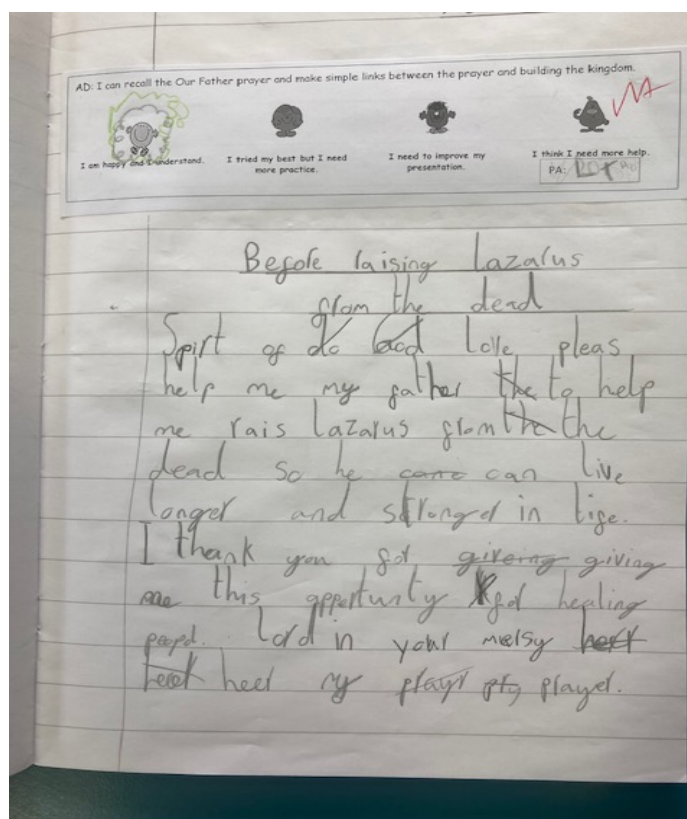 AD: I can recall the Our Father prayer and make simple links between the prayer and building the kingdom.
I am happy and I understand.
I tried my best but I need more practice.
I need to improve my presentation.
I think I need more help.
PA:
Before raising Lazarus
from the dead
Spirt of do God Love pleas
help me my father the to help
me rais Lazarus from the the
dead so he came can live
longer and stronger in life.
I thank you for giveing giving
me this oppertunity for healing
peopel. Lord in your mersy heet
hereet heer my prayr pry prayer.